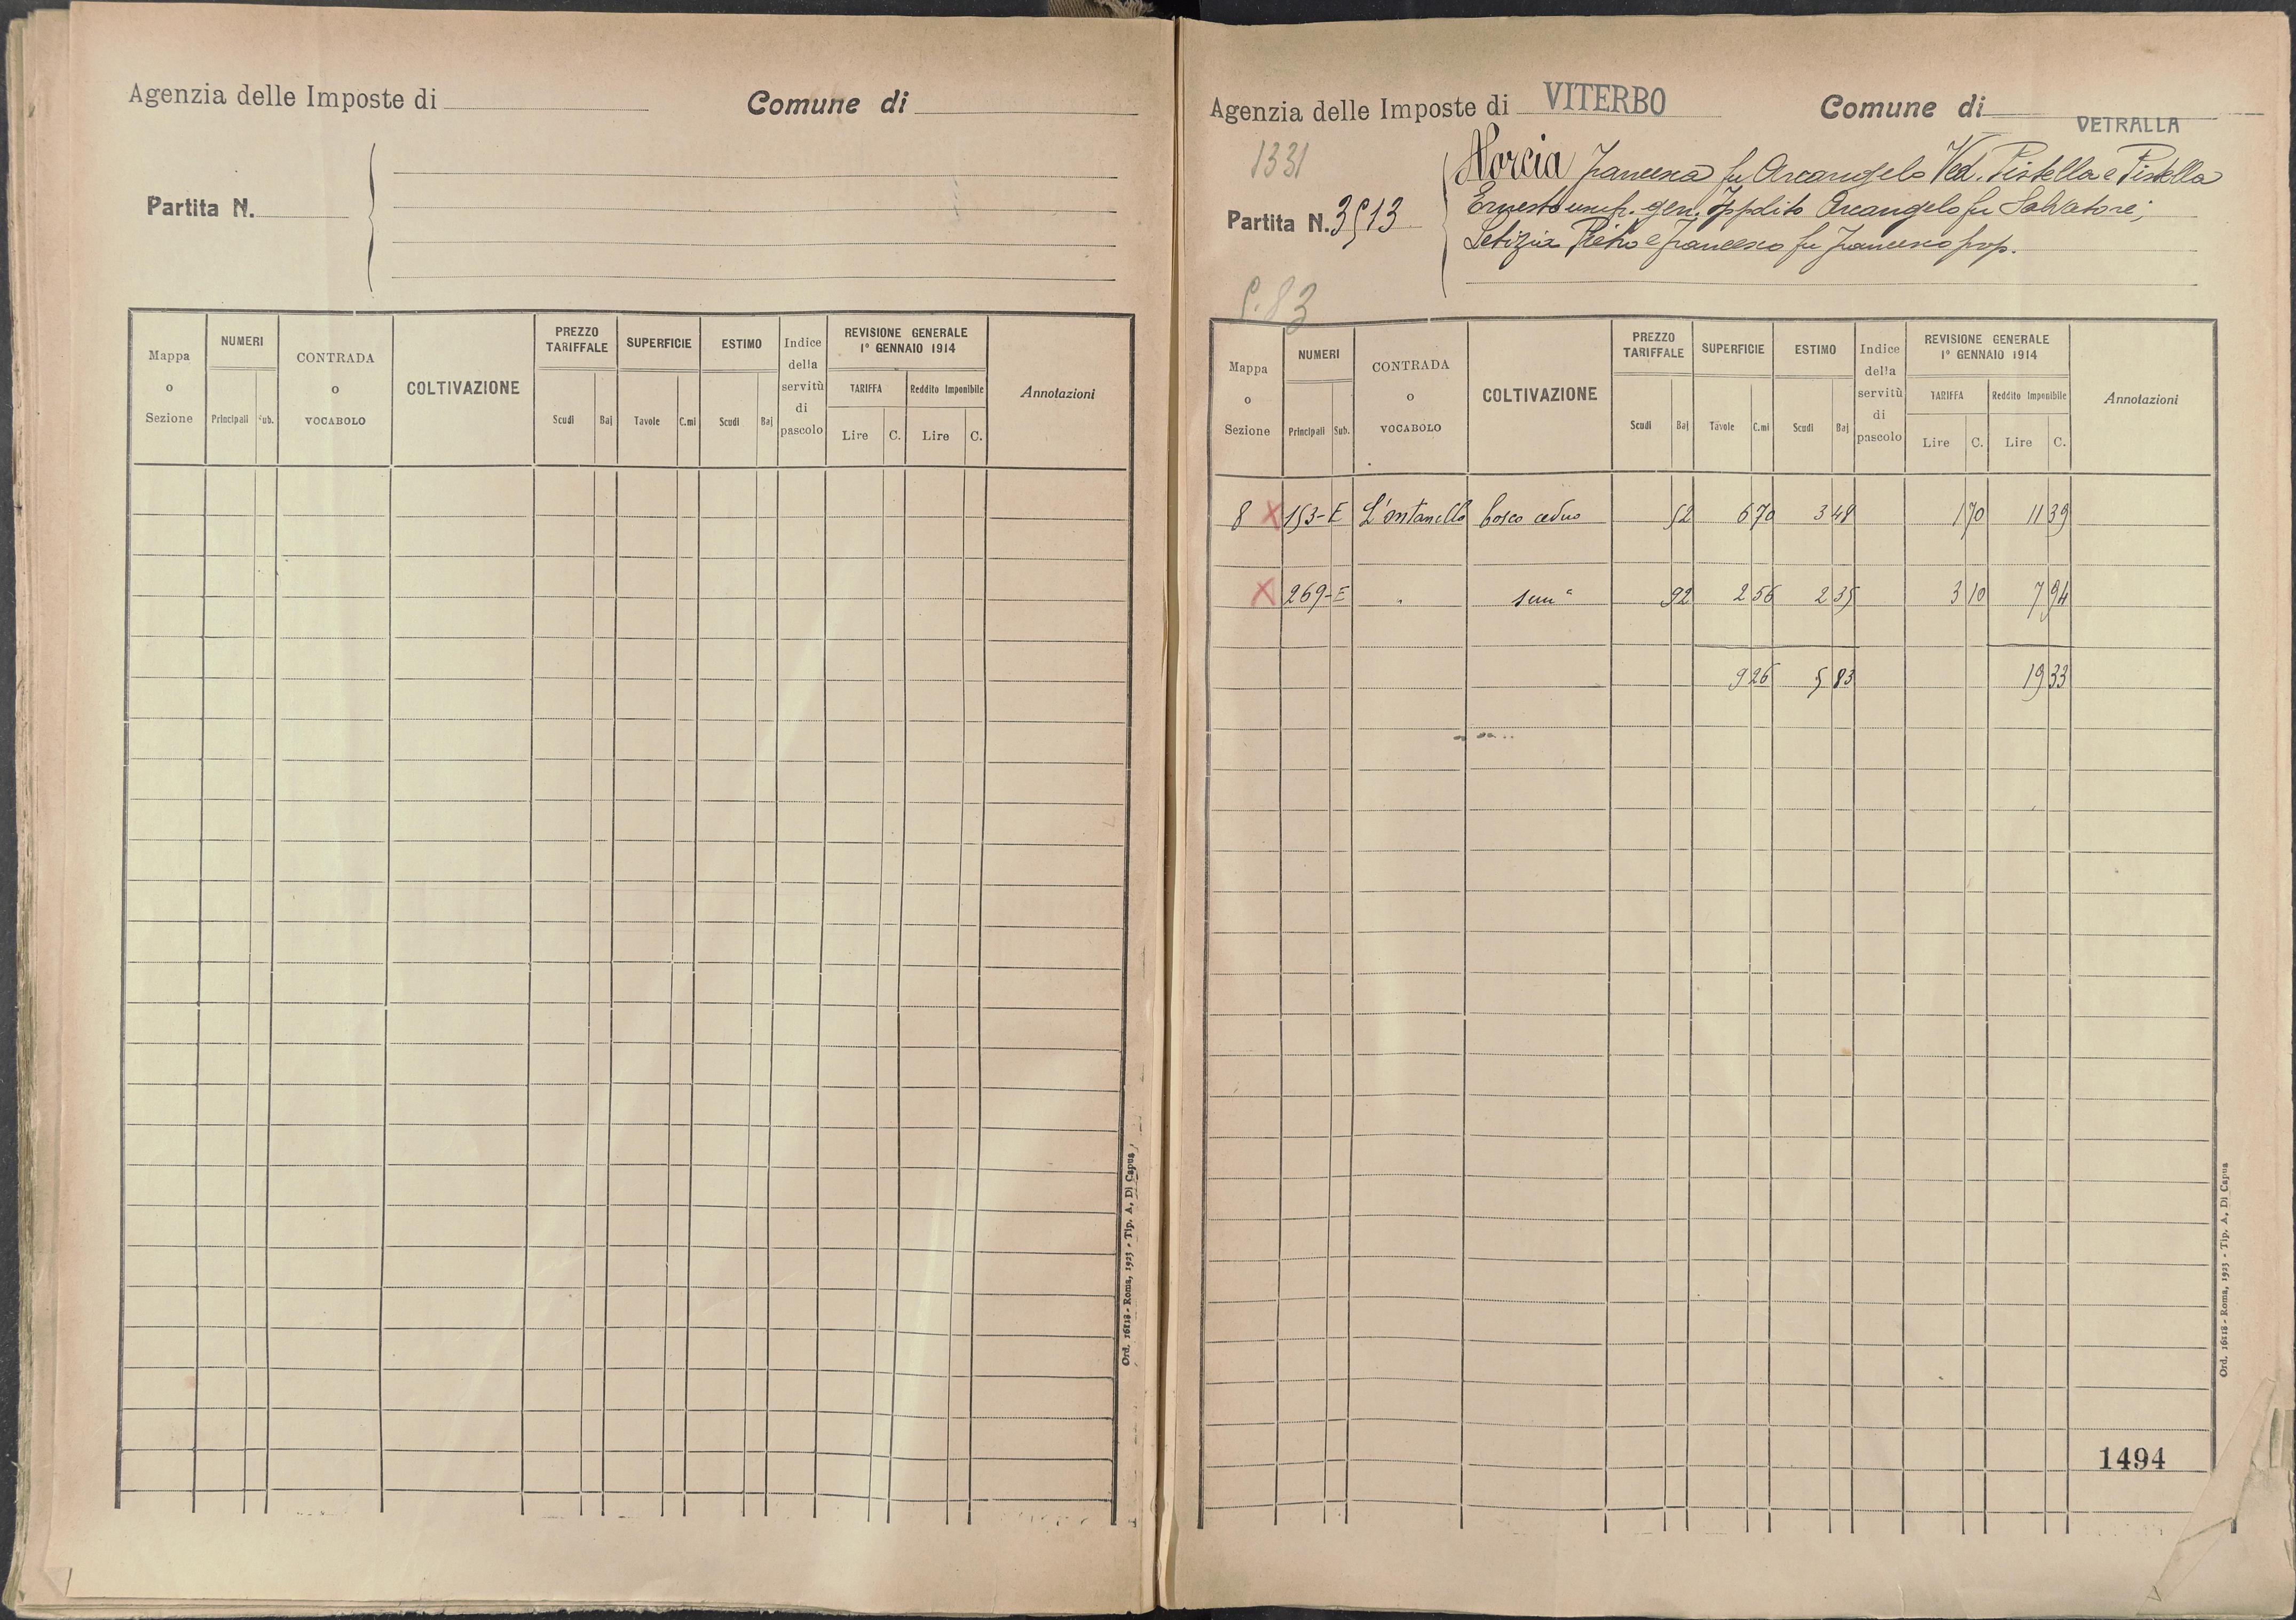 Agenzia delle Imposte di
Comune di
Partita N.
Mappa o Sezione
NUMERI
Principali
Sub.
CONTRADA o VOCABOLO
COLTIVAZIONE
PREZZO TARIFFALE
Scudi
Baj
SUPERFICIE
Tavole
C.mi
ESTIMO
Scudi
Baj
Indice della servitù di pascolo
REVISIONE GENERALE
1° GENNAIO 1914
TARIFFA
Lire
C.
Reddito Imponibile
Lire
C.
Annotazioni
Ord. 16118 - Roma, 1923 - Tip. A. Di Capua
Agenzia delle Imposte di VITERBO
Comune di VETRALLA
1331
Partita N. 3513
Norcia Francesca fu Arcangelo Ved. Pistella e Pistella
Ernesto usuf. gen. Ippolito Arcangelo fu Salvatore;
Letizia Pietro e Francesco fu Francesco prop.
P. 83
Mappa o Sezione
NUMERI
Principali
Sub.
CONTRADA o VOCABOLO
COLTIVAZIONE
PREZZO TARIFFALE
Scudi
Baj
SUPERFICIE
Tavole
C.mi
ESTIMO
Scudi
Baj
Indice della servitù di pascolo
REVISIONE GENERALE
1° GENNAIO 1914
TARIFFA
Lire
C.
Reddito Imponibile
Lire
C.
Annotazioni
8 X 153-E L'ontanello bosco ceduo 52 6 70 3 48 1 70 11 39
X 269-E " sem° 92 2 56 2 35 3 10 7 94
9 26 5 83 19 33
1494
Ord. 16118 - Roma, 1923 - Tip. A. Di Capua